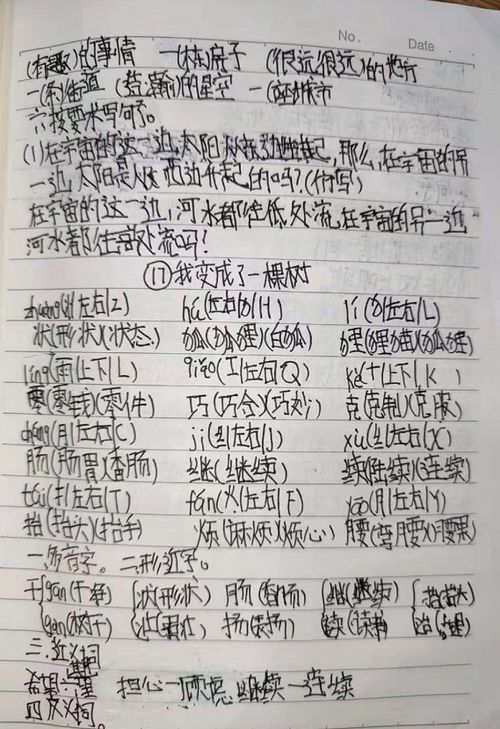 No.
Date
(有趣)的事情 一(栋)房子 (很远很远)的地方
一(条)街道 (苍瀚)的星空 一(座)城市
六按要求写句子。
(1)在宇宙的这一边,太阳从东边升起,那么,在宇宙的另
一边,太阳是从西边升起的吗?(仿写)
在宇宙的这一边,河水都往低处流,在宇宙的另一边
河水都往高处流吗?
(17)我变成了一棵树
zhuàng(丬|左右|Z) hú(左右|犭|H) lí(犭|左右|L)
状(形状)(状态) 狐(狐狸)(白狐) 狸(狸猫)(狐狸)
líng(雨|上下|L) qiǎo(工|左右|Q) kè(十|上下|K)
零(零钱)(零件) 巧(巧合)(巧妙) 克(克制)(克服)
cháng(月|左右|C) jì(纟|左右|J) xù(纟|左右|X)
肠(肠胃)(香肠) 继(继续) 续(陆续)(连续)
tái(扌|左右|T) fán(火|左右|F) yāo(月|左右|Y)
抬(抬头)(抬手) 烦(麻烦)(烦心) 腰(弯腰)(腰果)
一.多音字。二.形近字。
干{gān(干净) {状(形状) 肠(香肠) {继(继续) {抬(抬头)
gàn(树干) 壮(强壮) 扬(表扬) 读(读书) 治(治理)
三.近义词
希望—期望 担心—顾虑 继续—连续
四.反义词。